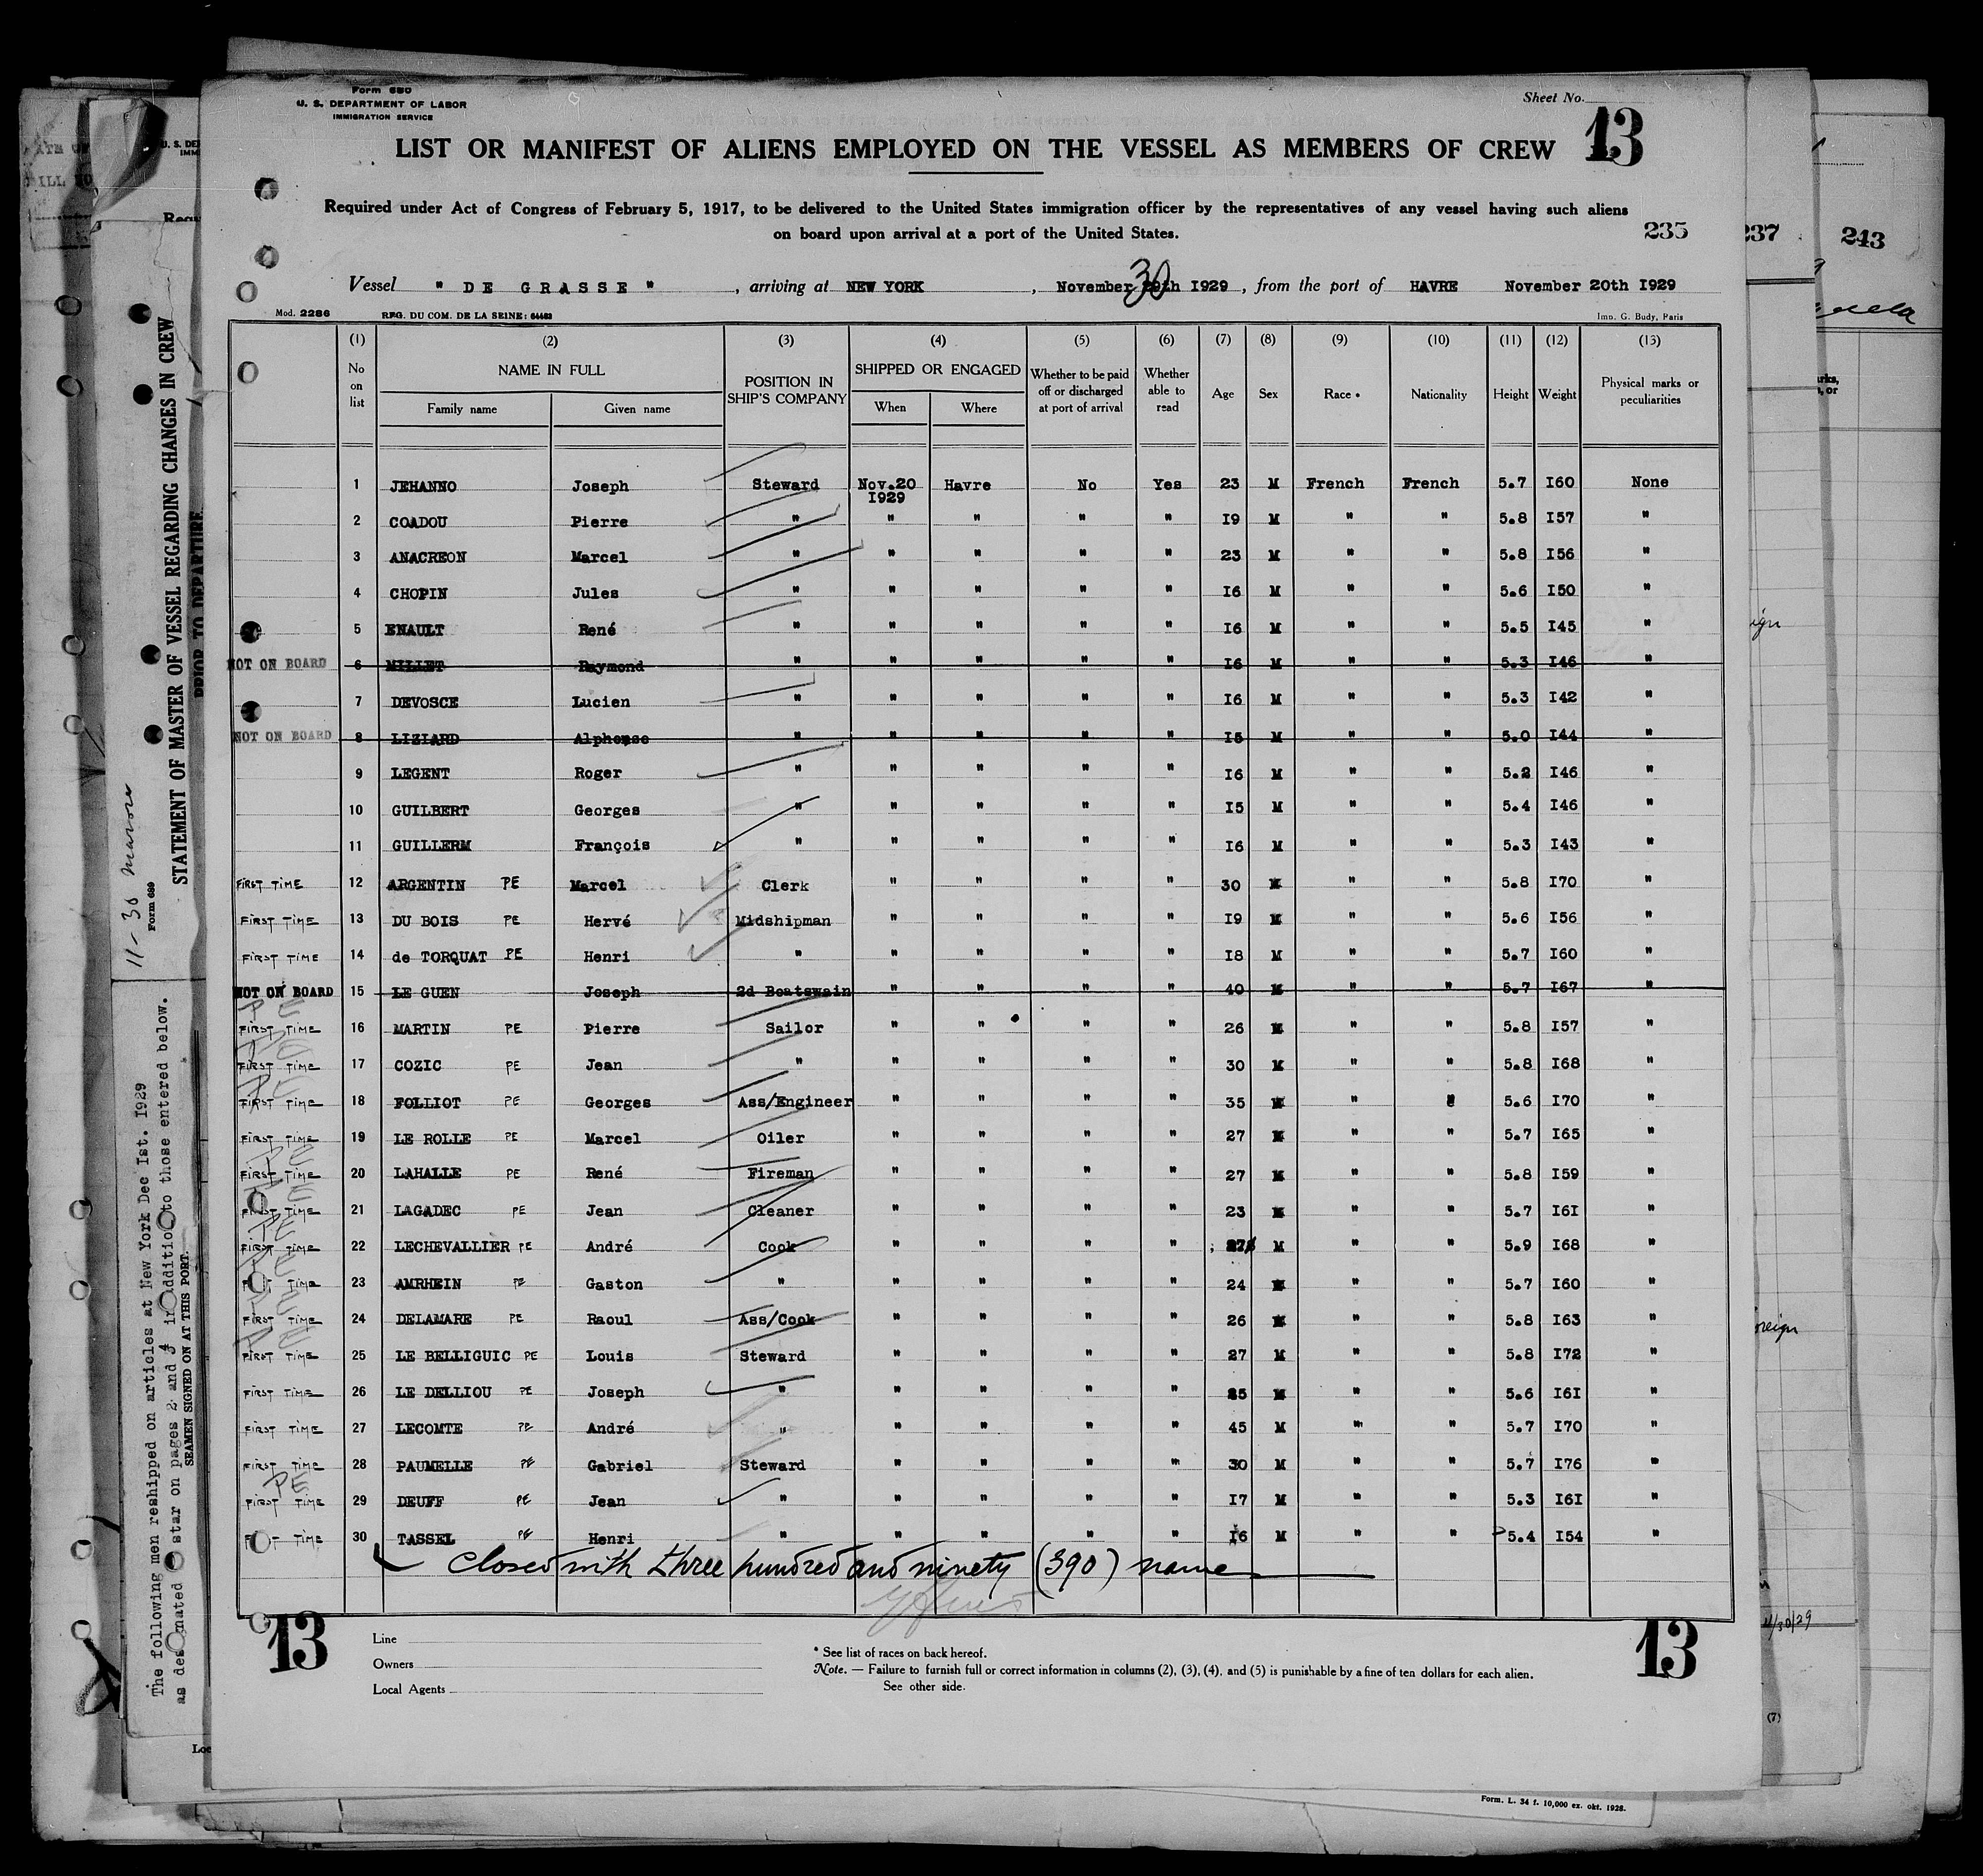 Form 680
U. S. DEPARTMENT OF LABOR
IMMIGRATION SERVICE
Sheet No. 13
LIST OR MANIFEST OF ALIENS EMPLOYED ON THE VESSEL AS MEMBERS OF CREW
Required under Act of Congress of February 5, 1917, to be delivered to the United States immigration officer by the representatives of any vessel having such aliens
on board upon arrival at a port of the United States.
235
237
243
Vessel " DE GRASSE " , arriving at NEW YORK , November 30th 1929 , from the port of HAVRE November 20th 1929
Mod. 2286 REG. DU COM. DE LA SEINE: 64483 Imp. G. Budy, Paris
(1) (2) (3) (4) (5) (6) (7) (8) (9) (10) (11) (12) (13)
No on list NAME IN FULL Family name Given name POSITION IN SHIP'S COMPANY SHIPPED OR ENGAGED When Where Whether to be paid off or discharged at port of arrival Whether able to read Age Sex Race * Nationality Height Weight Physical marks or peculiarities
1 JEHANNO Joseph Steward Nov.20 I929 Havre No Yes 23 M French French 5.7 I60 None
2 COADOU Pierre " " " " " I9 M " " 5.8 I57 "
3 ANACREON Marcel " " " " " 23 M " " 5.8 I56 "
4 CHOPIN Jules " " " " " I6 M " " 5.6 I50 "
5 ENAULT René " " " " " I6 M " " 5.5 I45 "
NOT ON BOARD 6 MILLET Raymond " " " " " I6 M " " 5.3 I46 "
7 DEVOSCE Lucien " " " " " I6 M " " 5.3 I42 "
NOT ON BOARD 8 LIZIARD Alphonse " " " " " I5 M " " 5.0 I44 "
9 LEGENT Roger " " " " " I6 M " " 5.2 I46 "
10 GUILBERT Georges " " " " " I5 M " " 5.4 I46 "
11 GUILLERM François " " " " " I6 M " " 5.3 I43 "
FIRST TIME 12 ARGENTIN PE Marcel Clerk " " " " 30 M " " 5.8 I70 "
FIRST TIME 13 DU BOIS PE Hervé Midshipman " " " " I9 M " " 5.6 I56 "
FIRST TIME 14 de TORQUAT PE Henri " " " " " I8 M " " 5.7 I60 "
NOT ON BOARD 15 LE GUEN Joseph 2d Boatswain " " " " 40 M " " 5.7 I67 "
PE
FIRST TIME 16 MARTIN PE Pierre Sailor " " " " 26 M " " 5.8 I57 "
FIRST TIME 17 COZIC PE Jean " " " " " 30 M " " 5.8 I68 "
PE
FIRST TIME 18 FOLLIOT PE Georges Ass/Engineer " " " " 35 M " " 5.6 I70 "
FIRST TIME 19 LE ROLLE PE Marcel Oiler " " " " 27 M " " 5.7 I65 "
PE
FIRST TIME 20 LAHALLE PE René Fireman " " " " 27 M " " 5.8 I59 "
PE
FIRST TIME 21 LAGADEC PE Jean Cleaner " " " " 23 M " " 5.7 I6I "
PE
FIRST TIME 22 LECHEVALLIER PE André Cook " " " " M " " 5.9 I68 "
PE
TIME 23 AMRHEIN PE Gaston " " " " " 24 M " " 5.7 I60 "
PE
FIRST TIME 24 DELAMARE PE Raoul Ass/Cook " " " " 26 M " " 5.8 I63 "
PE
FIRST TIME 25 LE BELLIGUIC PE Louis Steward " " " " 27 M " " 5.8 I72 "
FIRST TIME 26 LE DELLIOU PE Joseph " " " " " M " " 5.6 I6I "
FIRST TIME 27 LECOMTE PE André " " " " " 45 M " " 5.7 I70 "
FIRST TIME 28 PAUMELLE PE Gabriel Steward " " " " 30 M " " 5.7 I76 "
PE
FIRST TIME 29 DEUFF PE Jean " " " " " I7 M " " 5.3 I6I "
TIME 30 TASSEL PE Henri " " " " " I6 M " " 5.4 I54 "
Closed with three hundred and ninety (390) name
13
13
Line
Owners
Local Agents
* See list of races on back hereof.
Note. — Failure to furnish full or correct information in columns (2), (3), (4), and (5) is punishable by a fine of ten dollars for each alien.
See other side.
Form. L. 34 f. 10,000 ex. okt. 1928.
(7)
11-30
Form 689
STATEMENT OF MASTER OF VESSEL REGARDING CHANGES IN CREW
PRIOR TO DEPARTURE
The following men reshipped on articles at New York Dec Ist. I929
as designated star on pages 2 and in addition to those entered below.
SEAMEN SIGNED ON AT THIS PORT.